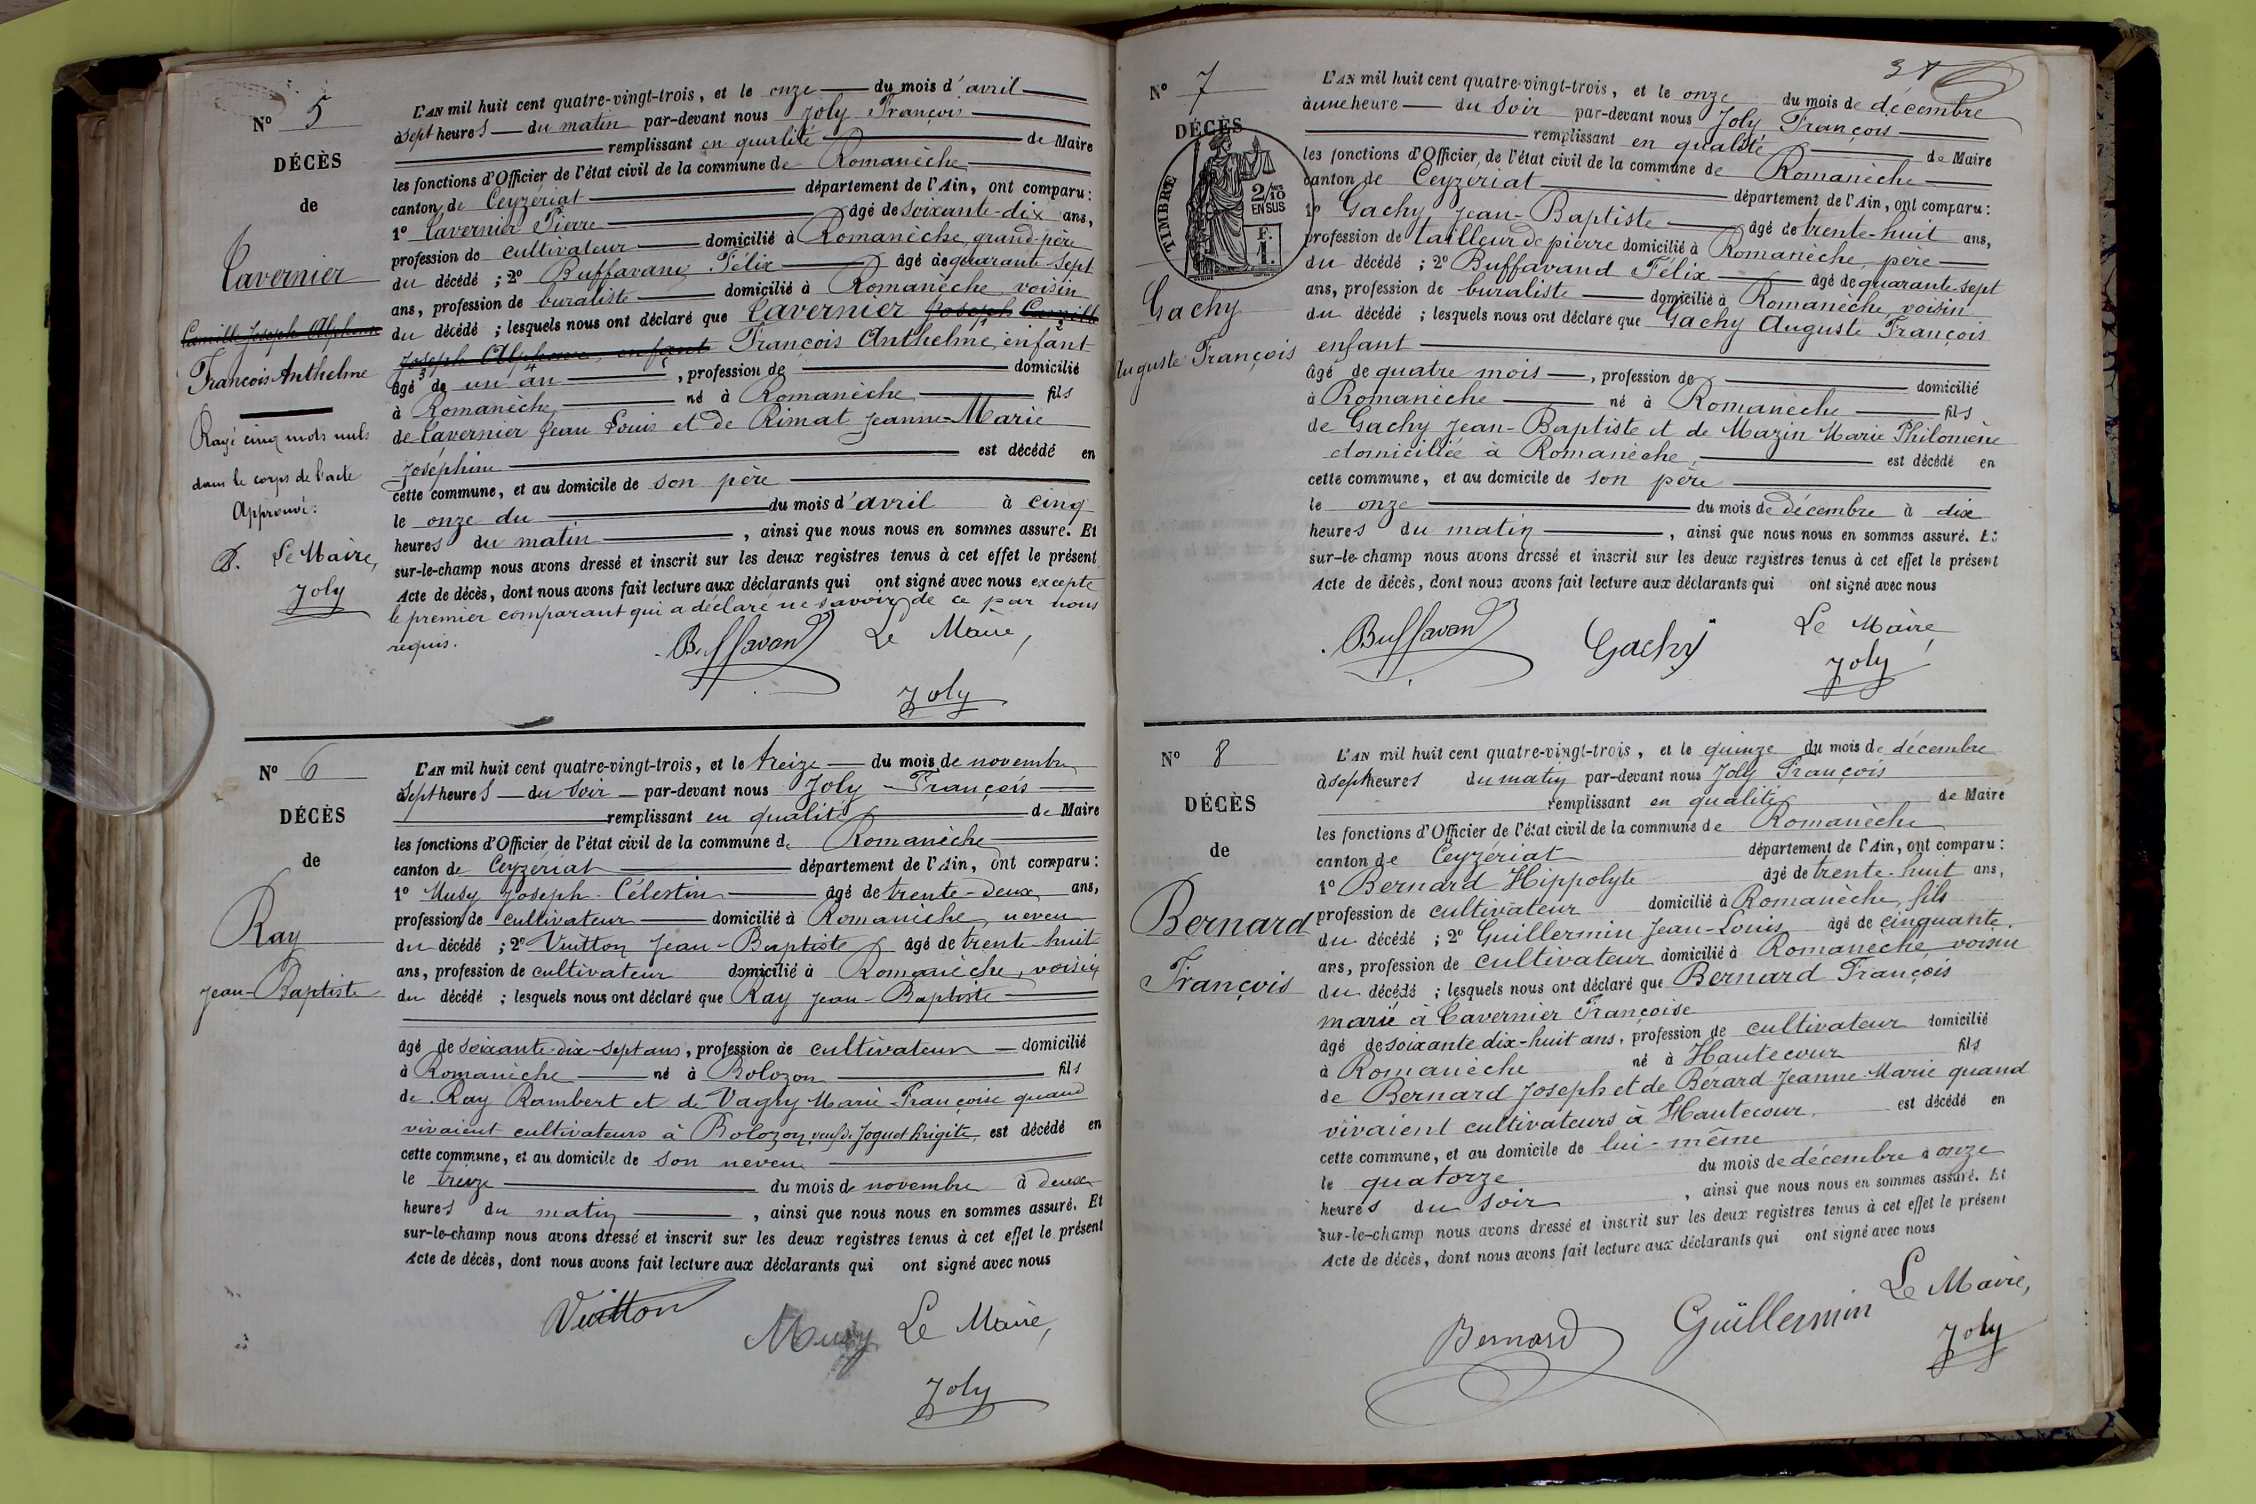 N° 5
DÉCÈS
de
Tavernier
Camille Joseph Alphonse
François Anthelme
Rayé cinq mots nuls
dans le corps de l'acte
Approuvé:
Le Maire,
Joly
L'AN mil huit cent quatre-vingt-trois, et le onze du mois d'avril
à sept heures du matin par-devant nous Joly François
remplissant en qualité de Maire
les fonctions d'Officier de l'état civil de la commune de Romanèche
canton de Ceyzériat département de l'Ain, ont comparu:
1° Tavernier Pierre âgé de soixante-dix ans,
profession de cultivateur domicilié à Romanèche, grand-père
du décédé; 2° Buffavand Félix âgé de quarante-sept
ans, profession de buraliste domicilié à Romanèche, voisin
du décédé; lesquels nous ont déclaré que Tavernier Joseph Camille
Joseph Alphonse, enfant François Anthelme, enfant
âgé de un an, profession de domicilié
à Romanèche né à Romanèche fils
de Tavernier Jean Louis et de Rimat Jeanne-Marie
Joséphine est décédé en
cette commune, et au domicile de son père
le onze du du mois d'avril à cinq
heures du matin, ainsi que nous nous en sommes assuré. Et
sur-le-champ nous avons dressé et inscrit sur les deux registres tenus à cet effet le présent
Acte de décès, dont nous avons fait lecture aux déclarants qui ont signé avec nous excepté
le premier comparant qui a déclaré ne savoir de ce par nous
requis.
Buffavand Le Maire,
Joly
N° 6
DÉCÈS
de
Ray
Jean-Baptiste
L'AN mil huit cent quatre-vingt-trois, et le treize du mois de novembre
à sept heures du soir par-devant nous Joly François
remplissant en qualité de Maire
les fonctions d'Officier de l'état civil de la commune de Romanèche
canton de Ceyzériat département de l'Ain, ont comparu:
1° Musy Joseph-Célestin âgé de trente-deux ans,
profession de cultivateur domicilié à Romanèche, neveu
du décédé; 2° Vuitton Jean-Baptiste âgé de trente-huit
ans, profession de cultivateur domicilié à Romanèche, voisin
du décédé; lesquels nous ont déclaré que Ray Jean-Baptiste
âgé de soixante-dix-sept ans, profession de cultivateur domicilié
à Romanèche né à Bolozon fils
de Ray Rambert et de Vaghy Marie-Françoise quand
vivaient cultivateurs à Bolozon, veuf de Joguet Brigite, est décédé en
cette commune, et au domicile de son neveu
le treize du mois de novembre à deux
heures du matin, ainsi que nous nous en sommes assuré. Et
sur-le-champ nous avons dressé et inscrit sur les deux registres tenus à cet effet le présent
Acte de décès, dont nous avons fait lecture aux déclarants qui ont signé avec nous
Vuitton Musy Le Maire,
Joly
N° 7
DÉCÈS
TIMBRE
2/10 EN SUS
F. 1.
Gachy
Auguste François
L'AN mil huit cent quatre-vingt-trois, et le onze du mois de décembre
à une heure du soir par-devant nous Joly François
remplissant en qualité de Maire
les fonctions d'Officier de l'état civil de la commune de Romanèche
canton de Ceyzériat département de l'Ain, ont comparu:
1° Gachy Jean-Baptiste âgé de trente-huit ans,
profession de tailleur de pierre domicilié à Romanèche, père
du décédé; 2° Buffavand Félix âgé de quarante-sept
ans, profession de buraliste domicilié à Romanèche, voisin
du décédé; lesquels nous ont déclaré que Gachy Auguste François
enfant
âgé de quatre mois, profession de domicilié
à Romanèche né à Romanèche fils
de Gachy Jean-Baptiste et de Mazin Marie Philomène
domiciliée à Romanèche, est décédé en
cette commune, et au domicile de son père
le onze du mois de décembre à dix
heures du matin, ainsi que nous nous en sommes assuré. Et
sur-le-champ nous avons dressé et inscrit sur les deux registres tenus à cet effet le présent
Acte de décès, dont nous avons fait lecture aux déclarants qui ont signé avec nous
Buffavand Gachy Le Maire,
Joly
N° 8
DÉCÈS
de
Bernard
François
L'AN mil huit cent quatre-vingt-trois, et le quinze du mois de décembre
à sept heures du matin par-devant nous Joly François
remplissant en qualité de Maire
les fonctions d'Officier de l'état civil de la commune de Romanèche
canton de Ceyzériat département de l'Ain, ont comparu:
1° Bernard Hippolyte âgé de trente-huit ans,
profession de cultivateur domicilié à Romanèche, fils
du décédé; 2° Guillermin Jean-Louis âgé de cinquante
ans, profession de cultivateur domicilié à Romanèche voisin
du décédé; lesquels nous ont déclaré que Bernard François
marié à Tavernier Françoise
âgé de soixante dix-huit ans, profession de cultivateur domicilié
à Romanèche né à Hautecour fils
de Bernard Joseph et de Bérard Jeanne-Marie quand
vivaient cultivateurs à Hautecour, est décédé en
cette commune, et au domicile de lui-même
le quatorze du mois de décembre à onze
heures du soir, ainsi que nous nous en sommes assuré. Et
sur-le-champ nous avons dressé et inscrit sur les deux registres tenus à cet effet le présent
Acte de décès, dont nous avons fait lecture aux déclarants qui ont signé avec nous
Bernard Guillermin Le Maire,
Joly